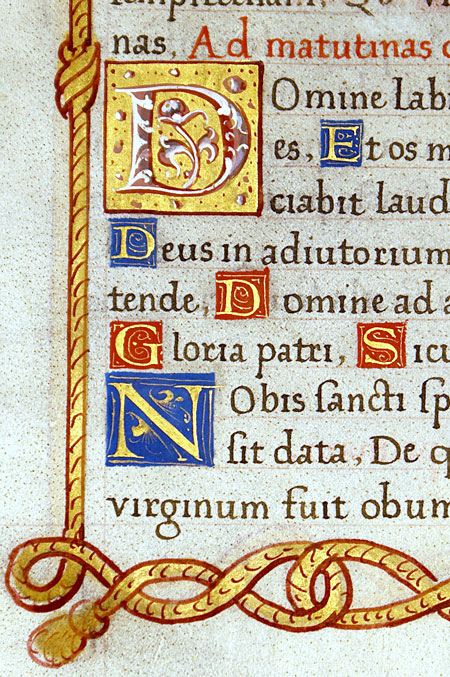 nas, Ad matutinas
Domine labi
es, Et os m
ciabit laud
Deus in adiutorium
tende, Domine ad a
Gloria patri, Sicu
Nobis sancti sp
sit data, De q
virginum fuit obum